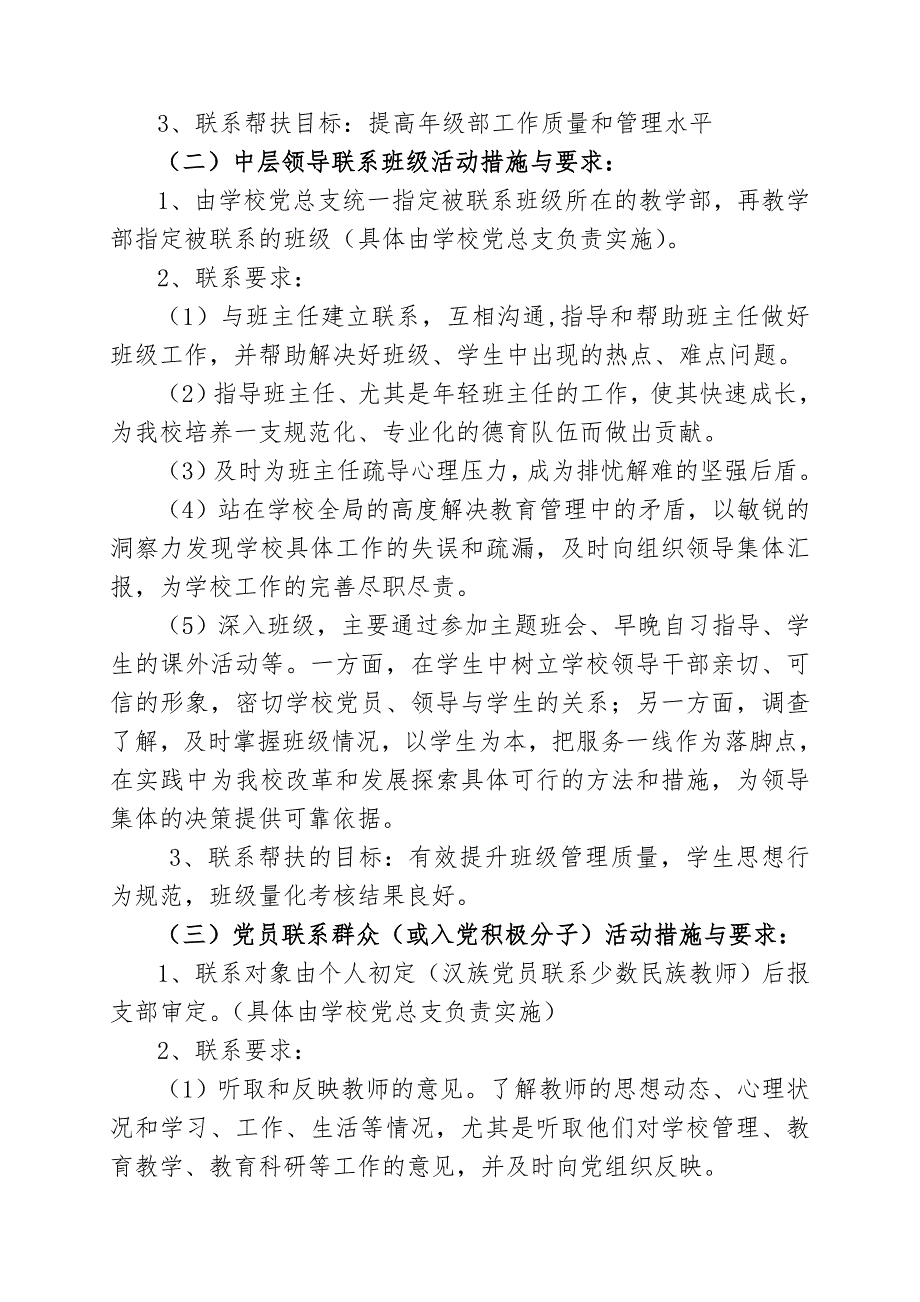 3、联系帮扶目标：提高年级部工作质量和管理水平
（二）中层领导联系班级活动措施与要求：
1、由学校党总支统一指定被联系班级所在的教学部，再教学
部指定被联系的班级（具体由学校党总支负责实施）。
2、联系要求：
（1）与班主任建立联系，互相沟通,指导和帮助班主任做好
班级工作，并帮助解决好班级、学生中出现的热点、难点问题。
（2）指导班主任、尤其是年轻班主任的工作，使其快速成长，
为我校培养一支规范化、专业化的德育队伍而做出贡献。
（3）及时为班主任疏导心理压力，成为排忧解难的坚强后盾。
（4）站在学校全局的高度解决教育管理中的矛盾，以敏锐的
洞察力发现学校具体工作的失误和疏漏，及时向组织领导集体汇
报，为学校工作的完善尽职尽责。
（5）深入班级，主要通过参加主题班会、早晚自习指导、学
生的课外活动等。一方面，在学生中树立学校领导干部亲切、可
信的形象，密切学校党员、领导与学生的关系；另一方面，调查
了解，及时掌握班级情况，以学生为本，把服务一线作为落脚点，
在实践中为我校改革和发展探索具体可行的方法和措施，为领导
集体的决策提供可靠依据。
3、联系帮扶的目标：有效提升班级管理质量，学生思想行
为规范，班级量化考核结果良好。
（三）党员联系群众（或入党积极分子）活动措施与要求：
1、联系对象由个人初定（汉族党员联系少数民族教师）后报
支部审定。（具体由学校党总支负责实施）
2、联系要求：
（1）听取和反映教师的意见。了解教师的思想动态、心理状
况和学习、工作、生活等情况，尤其是听取他们对学校管理、教
育教学、教育科研等工作的意见，并及时向党组织反映。